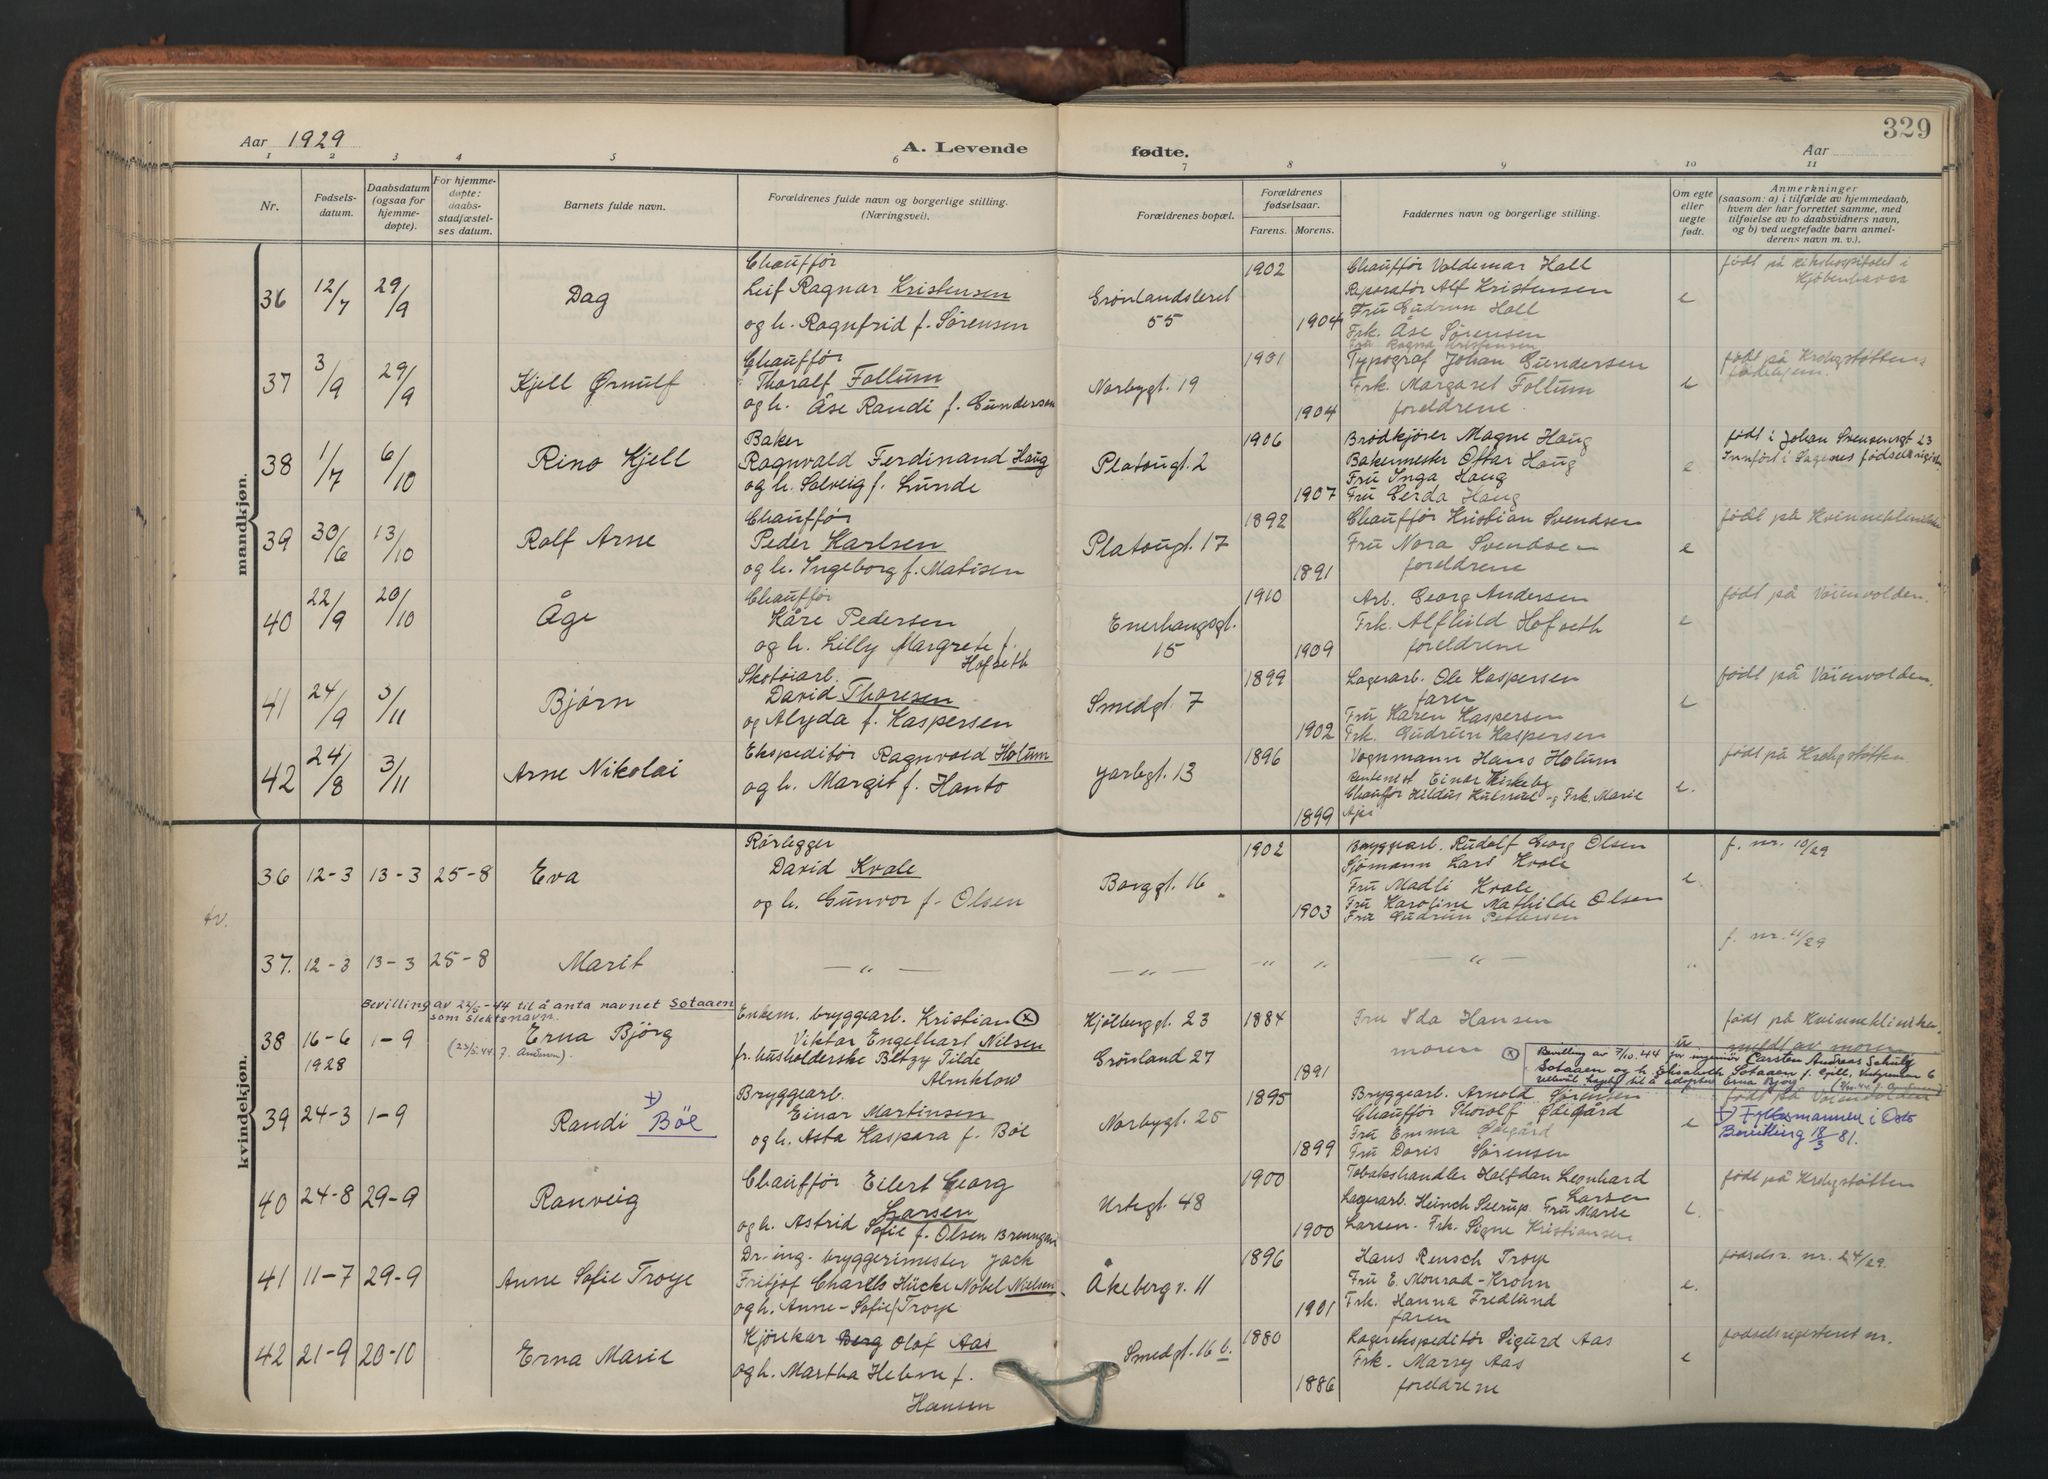 Aar 1929
A. Levende
fødte.
Aar
329
1 2 3 4 5 6 7 8 9 10 11
Nr.
Fødsels-
datum.
Daabsdatum
(ogsaa for
hjemme-
døpte).
For hjemme-
døpte:
daabs-
stadfæstel-
ses datum.
Barnets fulde navn.
Forældrenes fulde navn og borgerlige stilling.
(Næringsvei).
Forældrenes bopæl.
Forældrenes
fødselsaar.
Farens. Morens.
Faddernes navn og borgerlige stilling.
Om egte
eller
uegte
født.
Anmerkninger
(saasom: a) i tilfælde av hjemmedaab,
hvem der har forrettet samme, med
tilføielse av to daabsvidners navn,
og b) ved uegtefødte barn anmel-
derens navn m. v.).
mandkjøn.
36 12/7 29/9
Dag
Chauffør
Leif Ragnar Kristensen
og h. Ragnfrid f. Sørensen
Grønlandsleret
55
1902
1904
Chauffør Valdemar Hall
Reparatør Alf Kristensen
Fru Gudrun Hall
Frk. Åse Sørensen
Fru Ragna Kristensen
e
født på Rikshospitalet i
Kjøbenhavn
37 3/9 29/9
Kjell Ørnulf
Chauffør
Thoralf Follum
og h. Åse Randi f. Gundersen
Norbygt. 19
1901
1904
Typograf Johan Gundersen
Frk. Margaret Follum
foreldrene
e
født på Krohgstøttens
fødehjem.
38 1/7 6/10
Rino Kjell
Baker
Ragnvald Ferdinand Haug
og h. Solveig f. Lunde
Platougt. 2
1906
1907
Brødkjører Magne Haug
Bakermester Ottar Haug
Fru Inga Haug
Fru Gerda Haug
e
født i Johan Svensensgt 23
Innført i Sagenes fødselsregister
39 30/6 13/10
Rolf Arne
Chauffør
Peder Karlsen
og h. Ingeborg f. Matisen
Platougt. 17
1892
1891
Chauffør Kristian Svendsen
Fru Nora Svendsen
foreldrene
e
født på Kvinneklinikken
40 22/9 20/10
Åge
Chauffør
Kåre Pedersen
og h. Lilly Margrete f.
Hofseth
Enerhaugsgt.
15
1910
1909
Arb. Georg Andersen
Frk. Alfhild Hofseth
foreldrene
e
født på Voienvolden.
41 24/9 3/11
Bjørn
Skotøiarb.
David Thoresen
og Alyda f. Kaspersen
Smedgt. 7
1899
1902
Lagerarb. Ole Kaspersen
faren
Fru Karen Kaspersen
Frk. Gudrun Kaspersen
e
født på Voienvolden.
42 24/8 3/11
Arne Nikolai
Ekspeditør Ragnvald Holum
og h. Margit f. Hanto
Jarbgt. 13
1896
1899
Vognmann Hans Holum
Einar Kirkeby
Chauffør Hildus Frk. Marie
e.
født på Krohgstøtten
kvindekjøn.
36 12-3 13-3 25-8
Eva
Rørlegger
David Kvale
og h. Gunvor f. Olsen
Borggt. 16
1902
1903
Bryggearb. Rudolf Georg Olsen
Sjømann Lars Kvale
Fru Madli Kvale
Fru Karoline Mathilde Olsen
Fru Gudrun Pettersen
e.
f. nr. 10/29
tv.
37. 12-3 13-3 25-8
Marit
— " —
— " —
" "
— " —
"
f. nr. 11/29
Bevilling av 22/5-44 til å anta navnet Sotaaen
som slektsnavn.
38 16-6 1928 1-9
Erna Bjørg
(23/5.44. J. Andersen).
Enkem. bryggearb. Kristian ⊗
Viktor Engelhart Nilsen
fr. husholderske Betzy Tilde
Almklow
Kjølberggt. 23
Grønland 27
1884
1891
Fru Ida Hansen
moren
u
født på Kvinneklinikken.
meldt av moren
⊗ Bevilling av 7/10.44 for ingeniør Carsten Andreas Schulz
Sotaaen og h. Elisabeth Sotaaen f. Gjill,
til å adoptere Erna Bjørg
39 24-3 1-9
Randi Böe
Bryggearb.
Einar Martinsen
og h. Asta Kaspara f. Böe
Norbygt. 25
1895
1899
Bryggearb. Arnold Sørensen
Chauffør Thorolf Ødegård
Fru Emma Ødegård
Fru Doris Sørensen
e
født på Voienvolden
Fylkesmannen i Oslo
Bevilling 18/3 81.
40 24-8 29-9
Ranveig
Chauffør Eilert Georg
Larsen
og h. Astrid Sofie f. Olsen Brenngen
Urtegt. 48
1900
1900
Tobakshandler Halfdan Leonhard
Larsen
Lagerarb. Heinch Seerup. Fru Marie
Larsen. Frk. Signe Kristiansen
e.
født på Krohgstøtten
41 11-7 29-9
Anne Sofie Troye
Dr. ing. bryggerimester Jack
Fritjof Charles Hücke Nobel Nielsen
og h. Anne-Sofie f Troye
Åkebergv. 11
1896
1901
Hans Rensch Troye
Fru E. Monrad-Krohn
Frk. Hanna Fredlund
faren
e.
fødselsr. nr. 24/29.
42 21-9 20-10
Erna Marie
Kjørekar Berg Olaf Aas
og h. Martha Helene f.
Hansen
Smedgt. 16 b.
1880
1886
Lagerekspeditør Sigurd Aas
Frk. Marry Aas
foreldrene
e
fødselsregisteret nr.